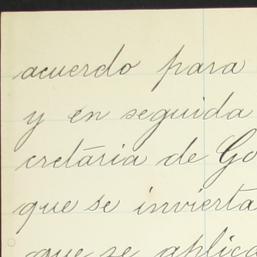 acuerdo para
y en seguida
cretaria de Go
que se invierta
que se aplica